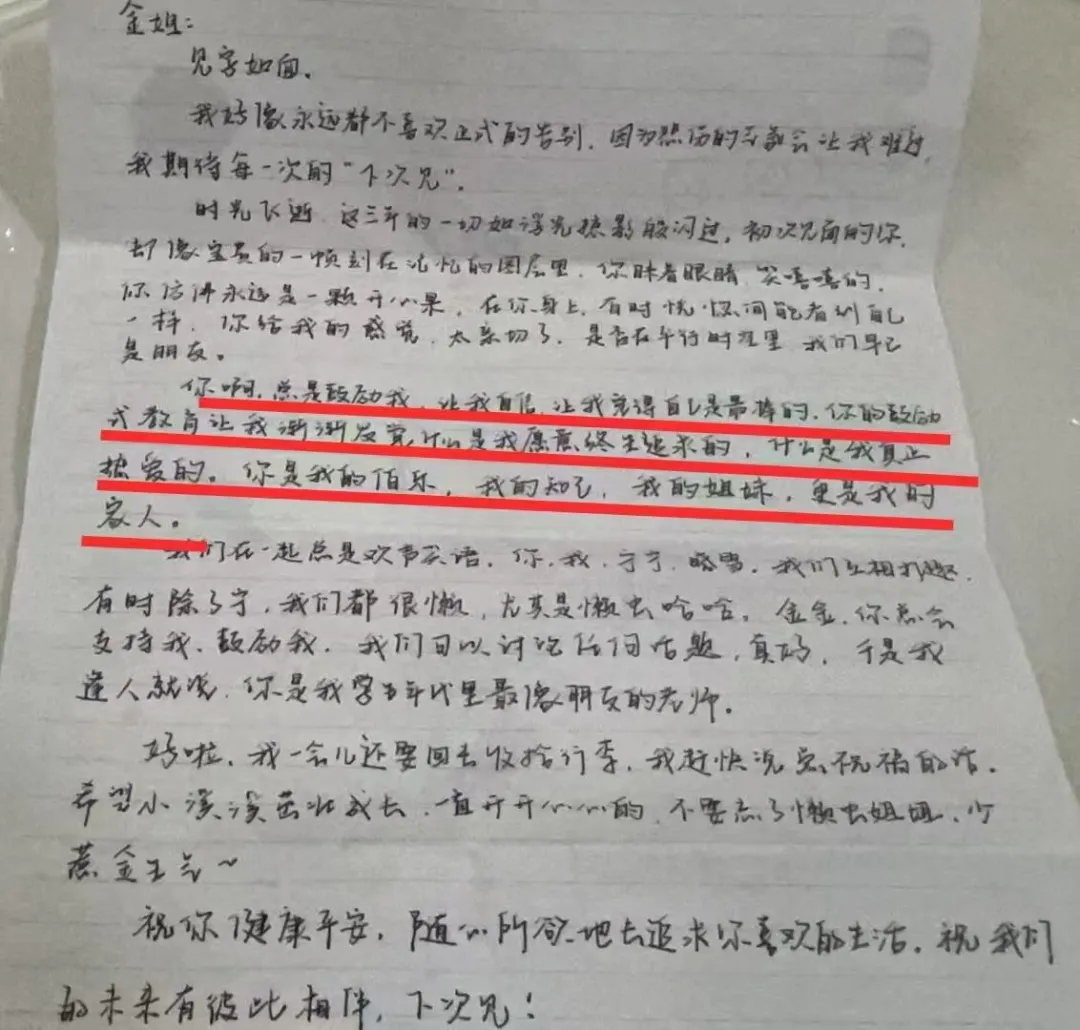 金姐：
见字如面。
我好像永远都不喜欢正式的告别，因为热伤的气氛会让我难过，
我期待每一次的“下次见”。
时光飞逝，这三年的一切如浮光掠影般闪过，初次见面的你，
却像宝贵的一帧刻在记忆的图层里，你眯着眼睛，笑嘻嘻的，
你仿佛永远是一颗开心果，在你身上，有时恍惚间能看到自己
一样，你给我的感觉，太亲切了，是否在平行时空里，我们早已
是朋友。
你啊，总是鼓励我，让我自信，让我觉得自己是最棒的，你的鼓励
式教育让我渐渐发觉，什么是我愿意终生追求的，什么是我真正
热爱的。你是我的伯乐，我的知己，我的姐妹，更是我的
家人。
我们在一起总是欢声笑语，你，我，宁宁，晓雪，我们互相打趣，
有时除了宁，我们都很懒，尤其是懒虫哈哈，金金，你总会
支持我，鼓励我，我们可以讨论任何话题，真好，于是我
逢人就说，你是我学生年代里最像朋友的老师。
好啦，我一会儿还要回去收拾行李，我赶快说完祝福的话，
希望小溪溪茁壮成长，一直开开心心的，不要忘了懒虫姐姐，少
惹金生气～
祝你健康平安，随心所欲地去追求你喜欢的生活，祝我们
的未来有彼此相伴，下次见！